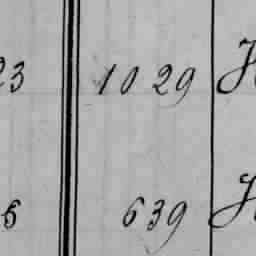 23 1029 H
6 639 H